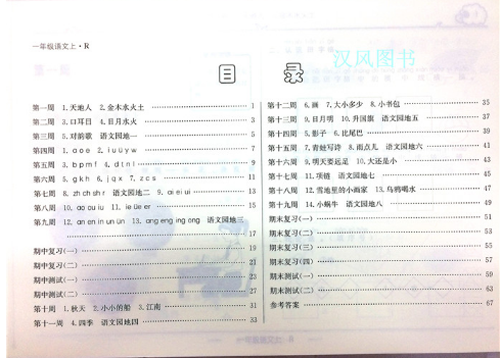 一年级语文上·R
汉风图书
目 录
第一周 1.天地人 2.金木水火土 1
第二周 3.口耳目 4.日月水火 3
第三周 5.对韵歌 语文园地一 5
第四周 1.ɑ o e 2.i u ü y w 7
第五周 3.b p m f 4.d t n l 9
第六周 5.g k h 6.j q x 7.z c s 11
第七周 8.zh ch sh r 语文园地二 9.ɑi ei ui 13
第八周 10.ɑo ou iu 11.ie üe er 15
第九周 12.ɑn en in un ün 13.ɑng eng ing ong 语文园地三
17
期中复习(一) 19
期中复习(二) 21
期中测试(一) 23
期中测试(二) 27
第十周 1.秋天 2.小小的船 3.江南 31
第十一周 4.四季 语文园地四 33
第十二周 6.画 7.大小多少 8.小书包 35
第十三周 9.日月明 10.升国旗 语文园地五 37
第十四周 5.影子 6.比尾巴 39
第十五周 7.青蛙写诗 8.雨点儿 语文园地六 41
第十六周 9.明天要远足 10.大还是小 43
第十七周 11.项链 语文园地七 45
第十八周 12.雪地里的小画家 13.乌鸦喝水 47
第十九周 14.小蜗牛 语文园地八 49
期末复习(一) 51
期末复习(二) 53
期末复习(三) 55
期末复习(四) 57
期末测试(一) 59
期末测试(二) 63
参考答案 67